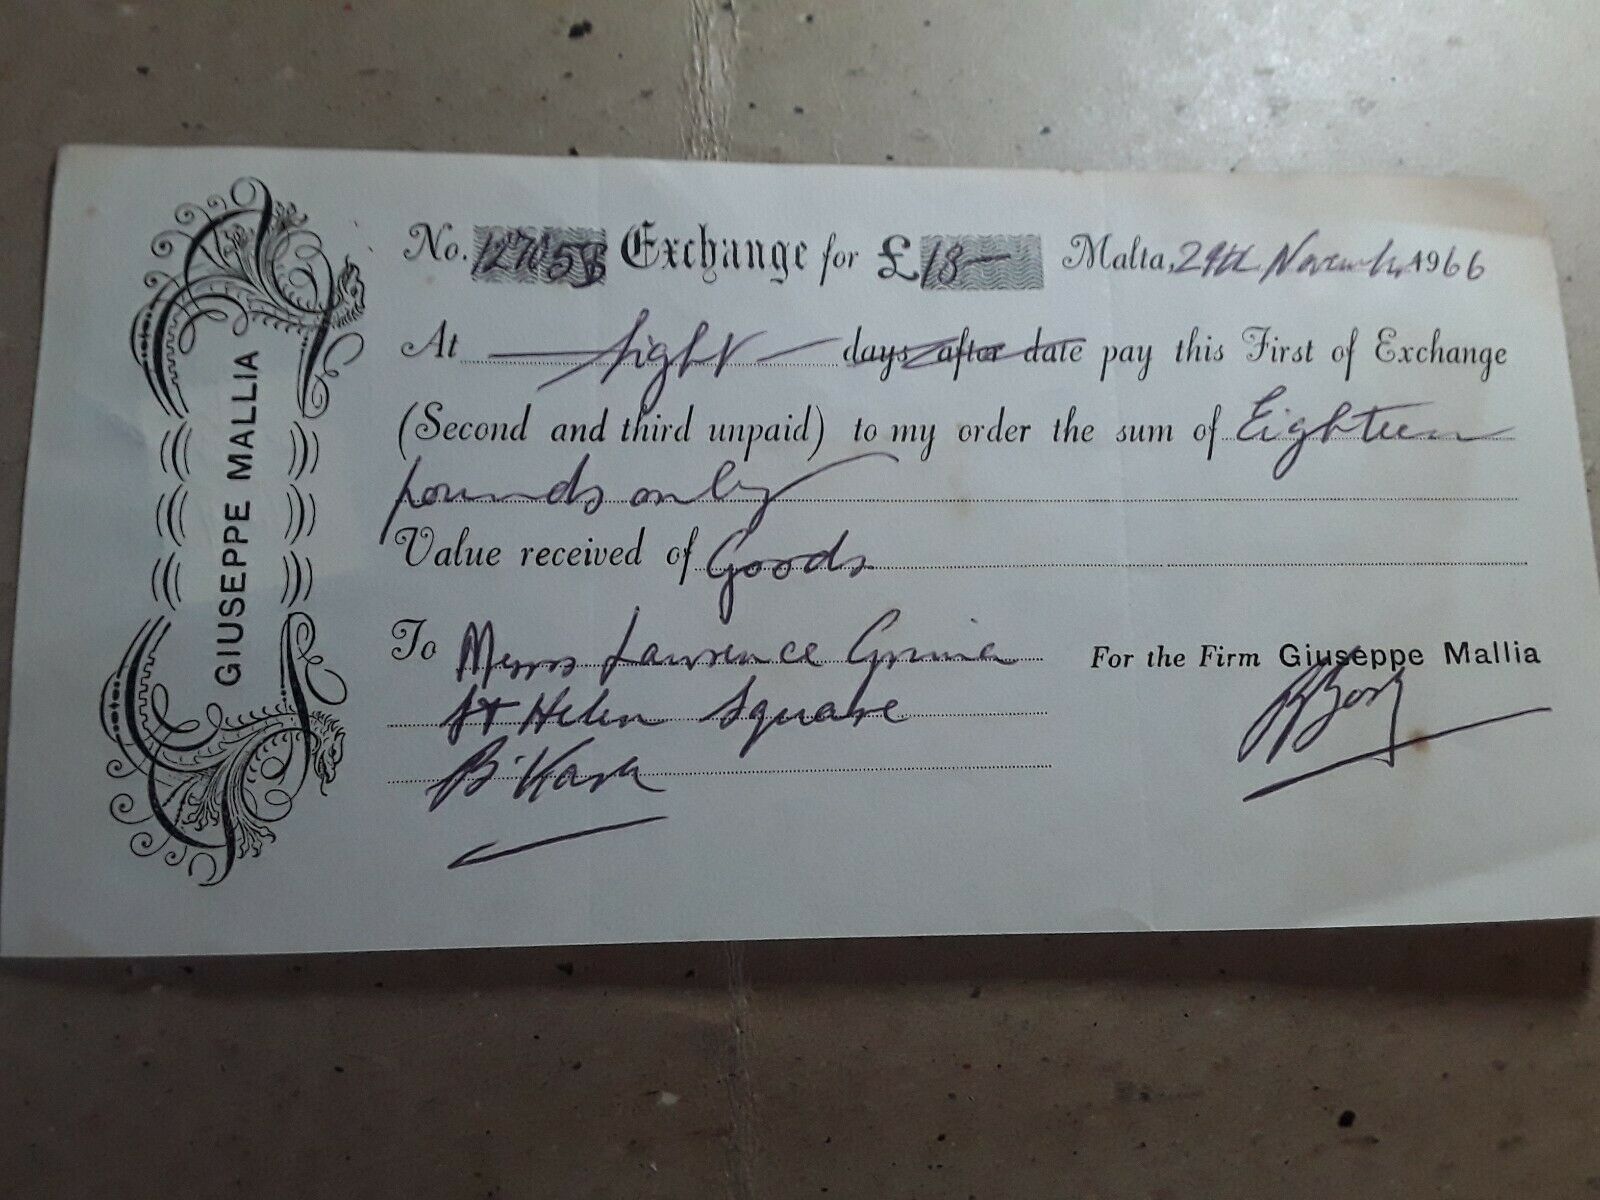 GIUSEPPE MALLIA
No. Exchange for £18— Malta, 29th November 1966
At sight days after date pay this First of Exchange
(Second and third unpaid) to my order the sum of Eighteen
pounds only
Value received of Goods
To Messrs Lawrence Grima
St Helen Square
B'Kara
For the Firm Giuseppe Mallia